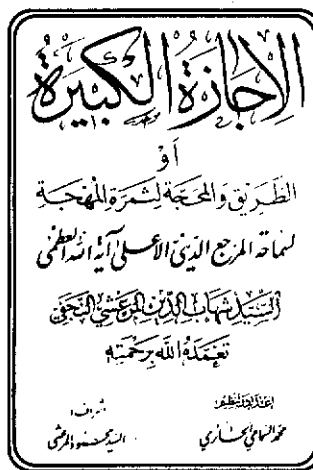 الإجازة الكبيرة
أو
الطريق والمحجة لثمرة المهجة
لسماحة المرجع الديني الأعلى آية الله العظمى
السيد شهاب الدين المرعشي النجفي
تغمده الله برحمته
إعداد وتنظيم
محمد السمامي الحائري
إشراف
السيد محمود المرعشي